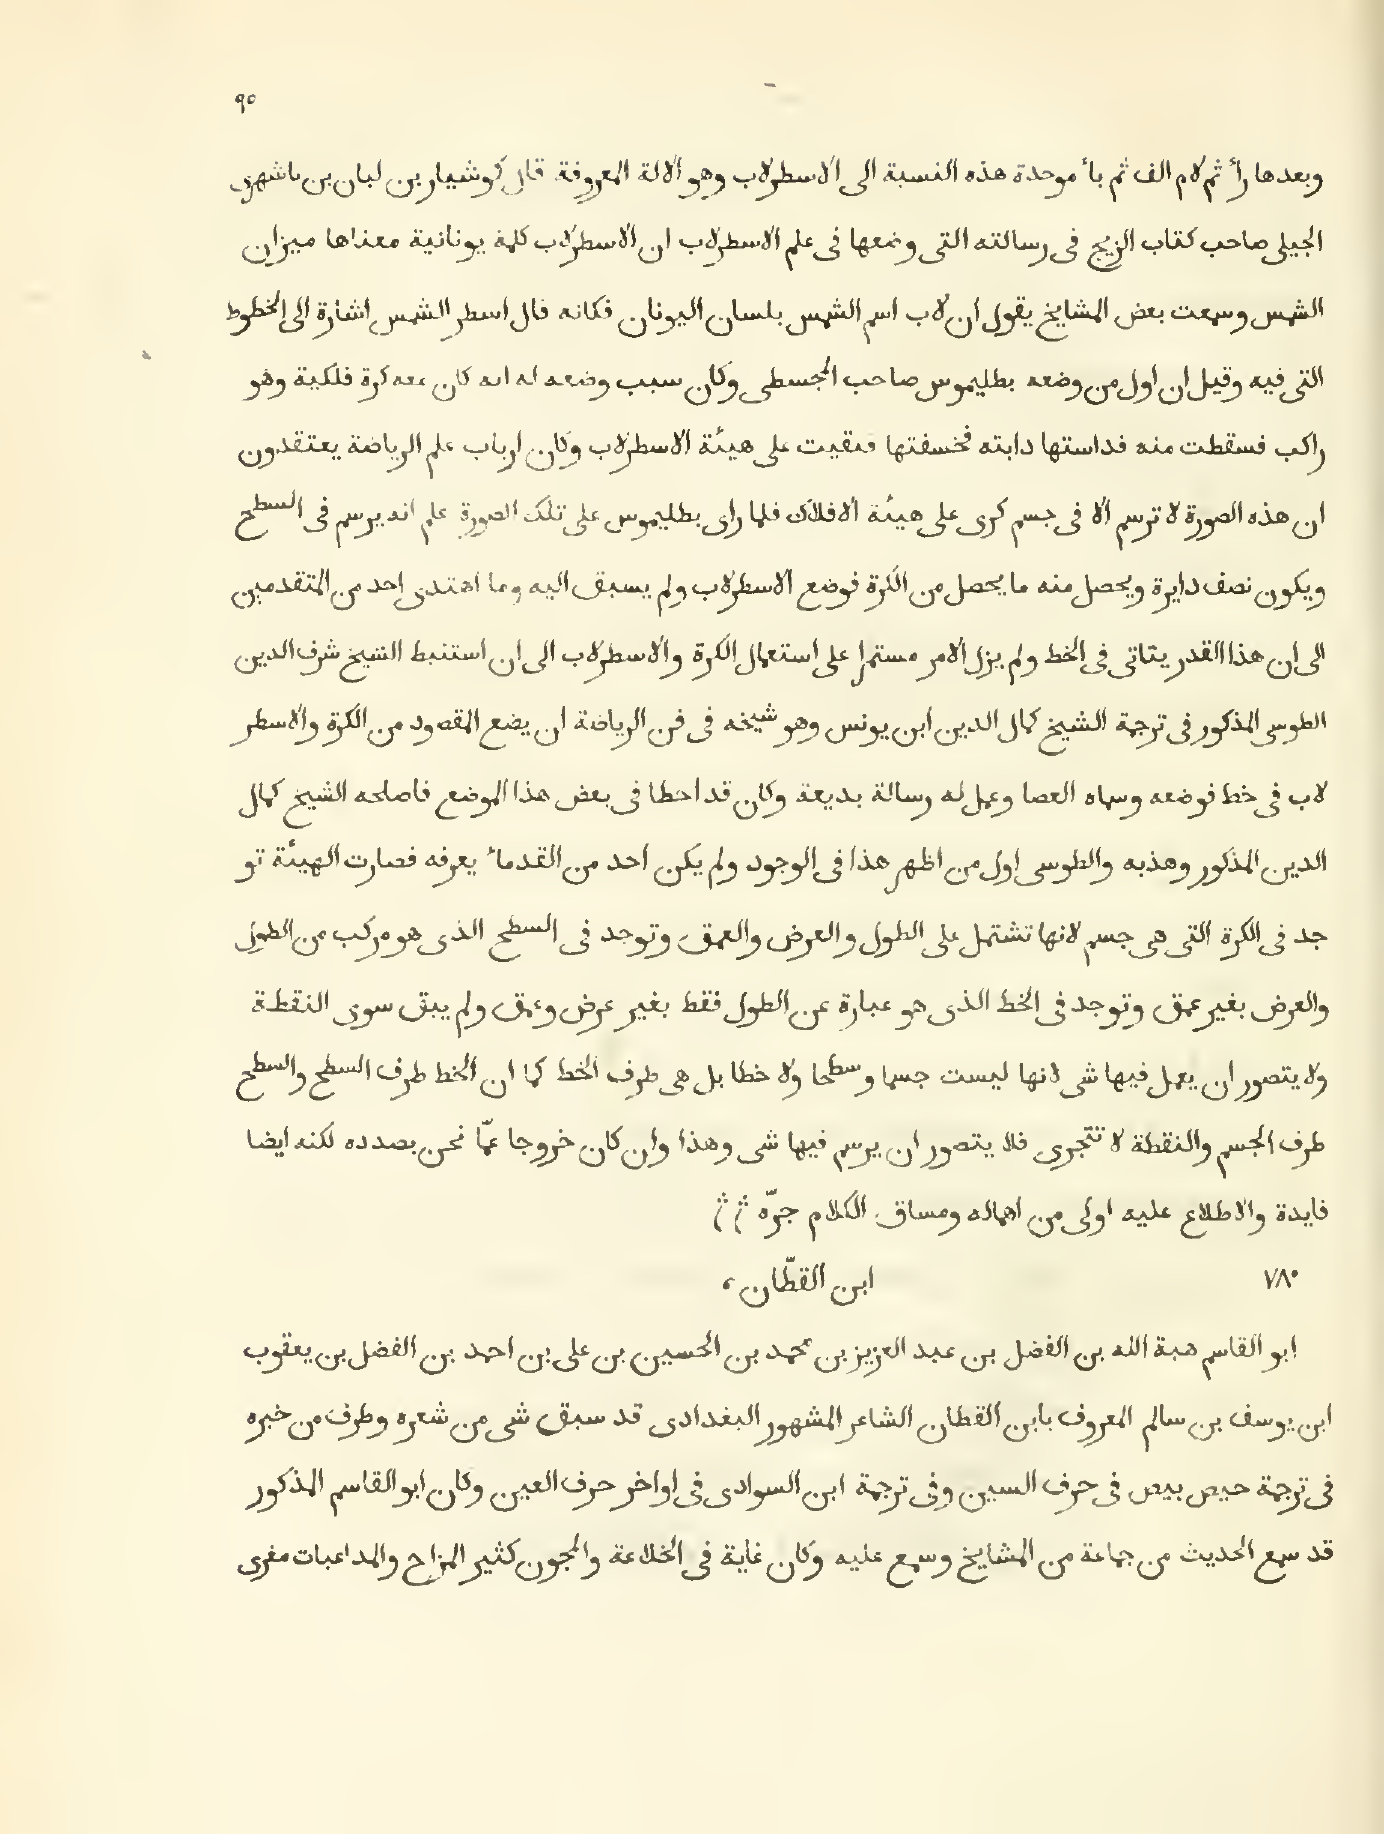 ٩٥
وبعدها رأ ثم لام الف ثم بأ موحدة هذه النسبة الى الاسطرلاب وهو الالة المعروفة قال كوشيار بن لبان بن باشهرى
الجيلى صاحب كتاب الزيج فى رسالته التى وضعها فى علم الاسطرلاب ان الاسطرلاب كلمة يونانية معناها ميزان
الشمس وسمعت بعض المشايخ يقول ان لاب اسم الشمس بلسان اليونان فكانه قال اسطر الشمس اشارة الى الخطوط
التى فيه وقيل ان اول من وضعه بطليموس صاحب المجسطى وكان سبب وضعه له انه كان معه كرة فلكية وهو
راكب فسقطت منه فداستها دابته فخسفتها فبقيت على هيئة الاسطرلاب وكان ارباب علم الرياضة يعتقدون
ان هذه الصورة لا ترسم الا فى جسم كرى على هيئة الافلاك فلما راى بطليموس على تلك الصورة علم انه يرسم فى السطح
ويكون نصف دايرة ويحصل منه ما يحصل من الكرة فوضع الاسطرلاب ولم يسبق اليه وما اهتدى احد من المتقدمين
الى ان هذا القدر يتاتى فى الخط ولم يزل الامر مستمرا على استعمال الكرة والاسطرلاب الى ان استنبط الشيخ شرف الدين
الطوسى المذكور فى ترجمة الشيخ كمال الدين ابن يونس وهو شيخه فى فن الرياضة ان يضع المقصود من الكرة والاسطر
لاب فى خط فوضعه وسماه العصا وعمل له رسالة بديعة وكان قد اخطا فى بعض هذا الموضع فاصلحه الشيخ كمال
الدين المذكور وهذبه والطوسى اول من اظهر هذا فى الوجود ولم يكن احد من القدمأ يعرفه فصارت الهيئة تو
جد فى الكرة التى هى جسم لانها تشتمل على الطول والعرض والعمق وتوجد فى السطح الذى هو مركب من الطول
والعرض بغير عمق وتوجد فى الخط الذى هو عبارة عن الطول فقط بغير عرض وعمق ولم يبق سوى النقطة
ولا يتصور ان يعمل فيها شى لانها ليست جسما وسطحا ولا خطا بل هى طرف الخط كما ان الخط طرف السطح والسطح
طرف الجسم والنقطة لا تتجرى فلا يتصور ان يرسم فيها شى وهذا وان كان خروجا عمّا نحن بصدده لكنه ايضا
فايدة والاطلاع عليه اولى من اهماله ومساق الكلام جرّه
٧٨٠ ابن القطّان،
ابو القاسم هبة الله بن الفضل بن عبد العزيز بن محمد بن الحسين بن على بن احمد بن الفضل بن يعقوب
ابن يوسف بن سالم المعروف بابن القطان الشاعر المشهور البغدادى قد سبق شى من شعره وطرف من خبره
فى ترجمة حيص بيص فى حرف السين وفى ترجمة ابن السوادى فى اواخر حرف العين وكان ابو القاسم المذكور
قد سمع الحديث من جماعة من المشايخ وسمع عليه وكان غاية فى الخلاعة والمجون كثير المزاح والمداعبات مغرى